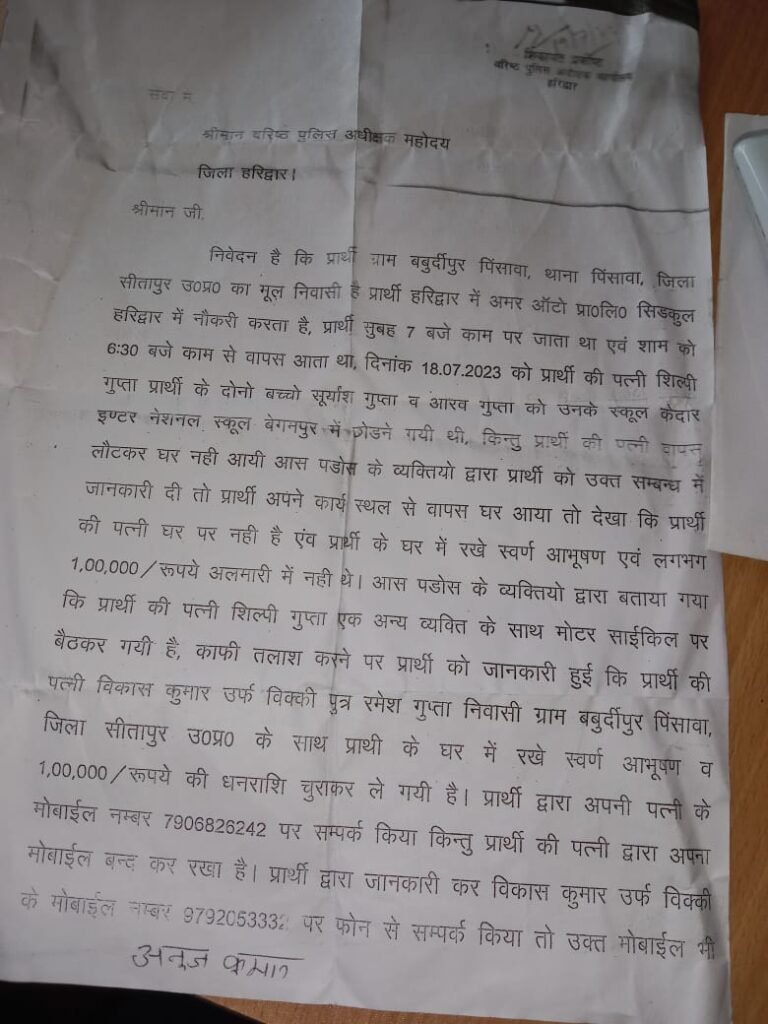 शिकायत प्रकोष्ठ
वरिष्ठ पुलिस अधीक्षक कार्यालय
हरिद्वार
सेवा में
श्रीमान वरिष्ठ पुलिस अधीक्षक महोदय
जिला हरिद्वार।
श्रीमान जी,
निवेदन है कि प्रार्थी ग्राम बबुर्दीपुर पिंसावा, थाना पिंसावा, जिला
सीतापुर उ0प्र0 का मूल निवासी है प्रार्थी हरिद्वार में अमर ऑटो प्रा0लि0 सिडकुल
हरिद्वार में नौकरी करता है, प्रार्थी सुबह 7 बजे काम पर जाता था एवं शाम को
6:30 बजे काम से वापस आता था, दिनांक 18.07.2023 को प्रार्थी की पत्नी शिल्पी
गुप्ता प्रार्थी के दोनो बच्चो सूर्यांश गुप्ता व आरव गुप्ता को उनके स्कूल केदार
इण्टर नेशनल स्कूल बेगमपुर में छोडने गयी थी, किन्तु प्रार्थी की पत्नी वापस
लौटकर घर नही आयी आस पडोस के व्यक्तियो द्वारा प्रार्थी को उक्त सम्बन्ध में
जानकारी दी तो प्रार्थी अपने कार्य स्थल से वापस घर आया तो देखा कि प्रार्थी
की पत्नी घर पर नही है एंव प्रार्थी के घर में रखे स्वर्ण आभूषण एवं लगभग
1,00,000/रूपये अलमारी में नही थे। आस पडोस के व्यक्तियो द्वारा बताया गया
कि प्रार्थी की पत्नी शिल्पी गुप्ता एक अन्य व्यक्ति के साथ मोटर साईकिल पर
बैठकर गयी है, काफी तलाश करने पर प्रार्थी को जानकारी हुई कि प्रार्थी की
पत्नी विकास कुमार उर्फ विक्की पुत्र रमेश गुप्ता निवासी ग्राम बबुर्दीपुर पिंसावा,
जिला सीतापुर उ0प्र0 के साथ प्रार्थी के घर में रखे स्वर्ण आभूषण व
1,00,000/रूपये की धनराशि चुराकर ले गयी है। प्रार्थी द्वारा अपनी पत्नी के
मोबाईल नम्बर 7906826242 पर सम्पर्क किया किन्तु प्रार्थी की पत्नी द्वारा अपना
मोबाईल बन्द कर रखा है। प्रार्थी द्वारा जानकारी कर विकास कुमार उर्फ विक्की
के मोबाईल नम्बर पर फोन से सम्पर्क किया तो उक्त मोबाईल भी
अनुज कुमार